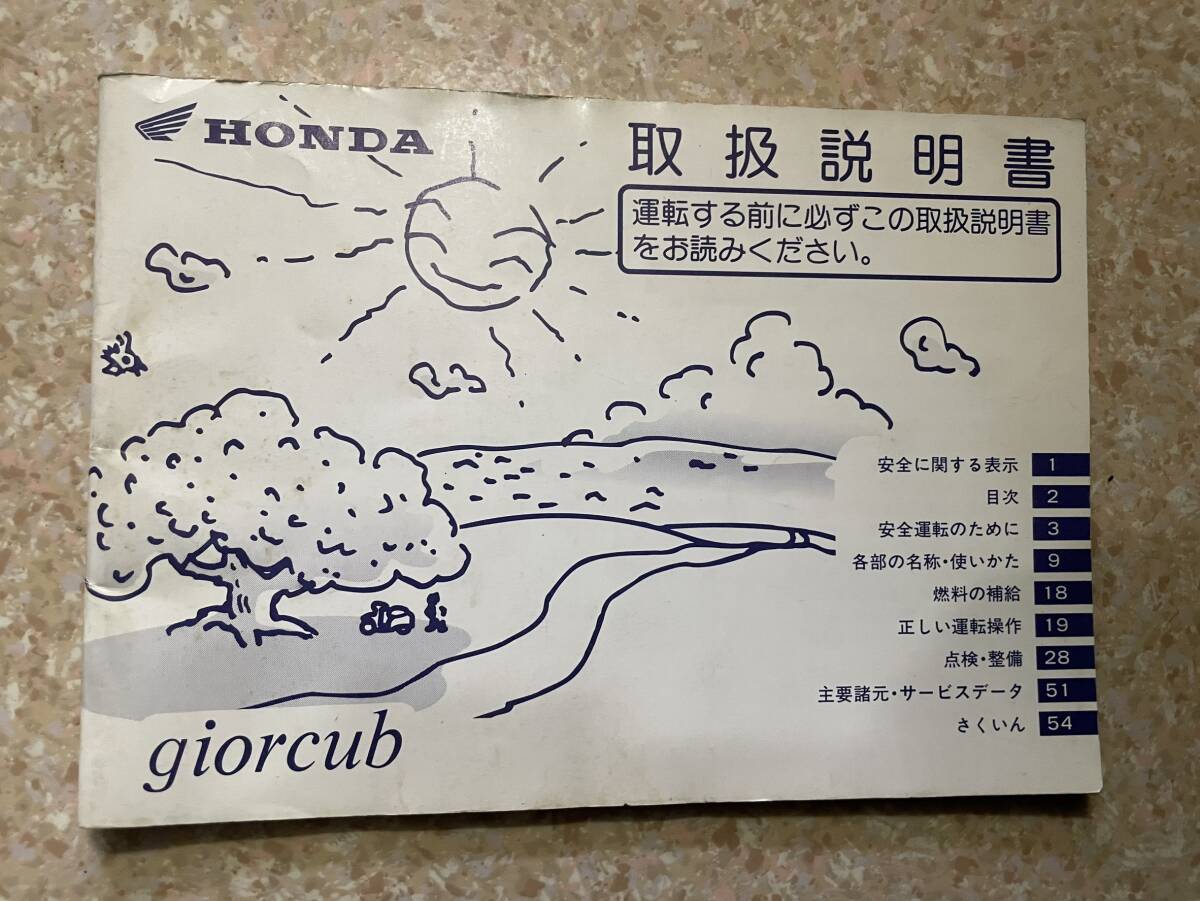 HONDA
取扱説明書
運転する前に必ずこの取扱説明書
をお読みください。
安全に関する表示 1
目次 2
安全運転のために 3
各部の名称・使いかた 9
燃料の補給 18
正しい運転操作 19
点検・整備 28
主要諸元・サービスデータ 51
さくいん 54
giorcub